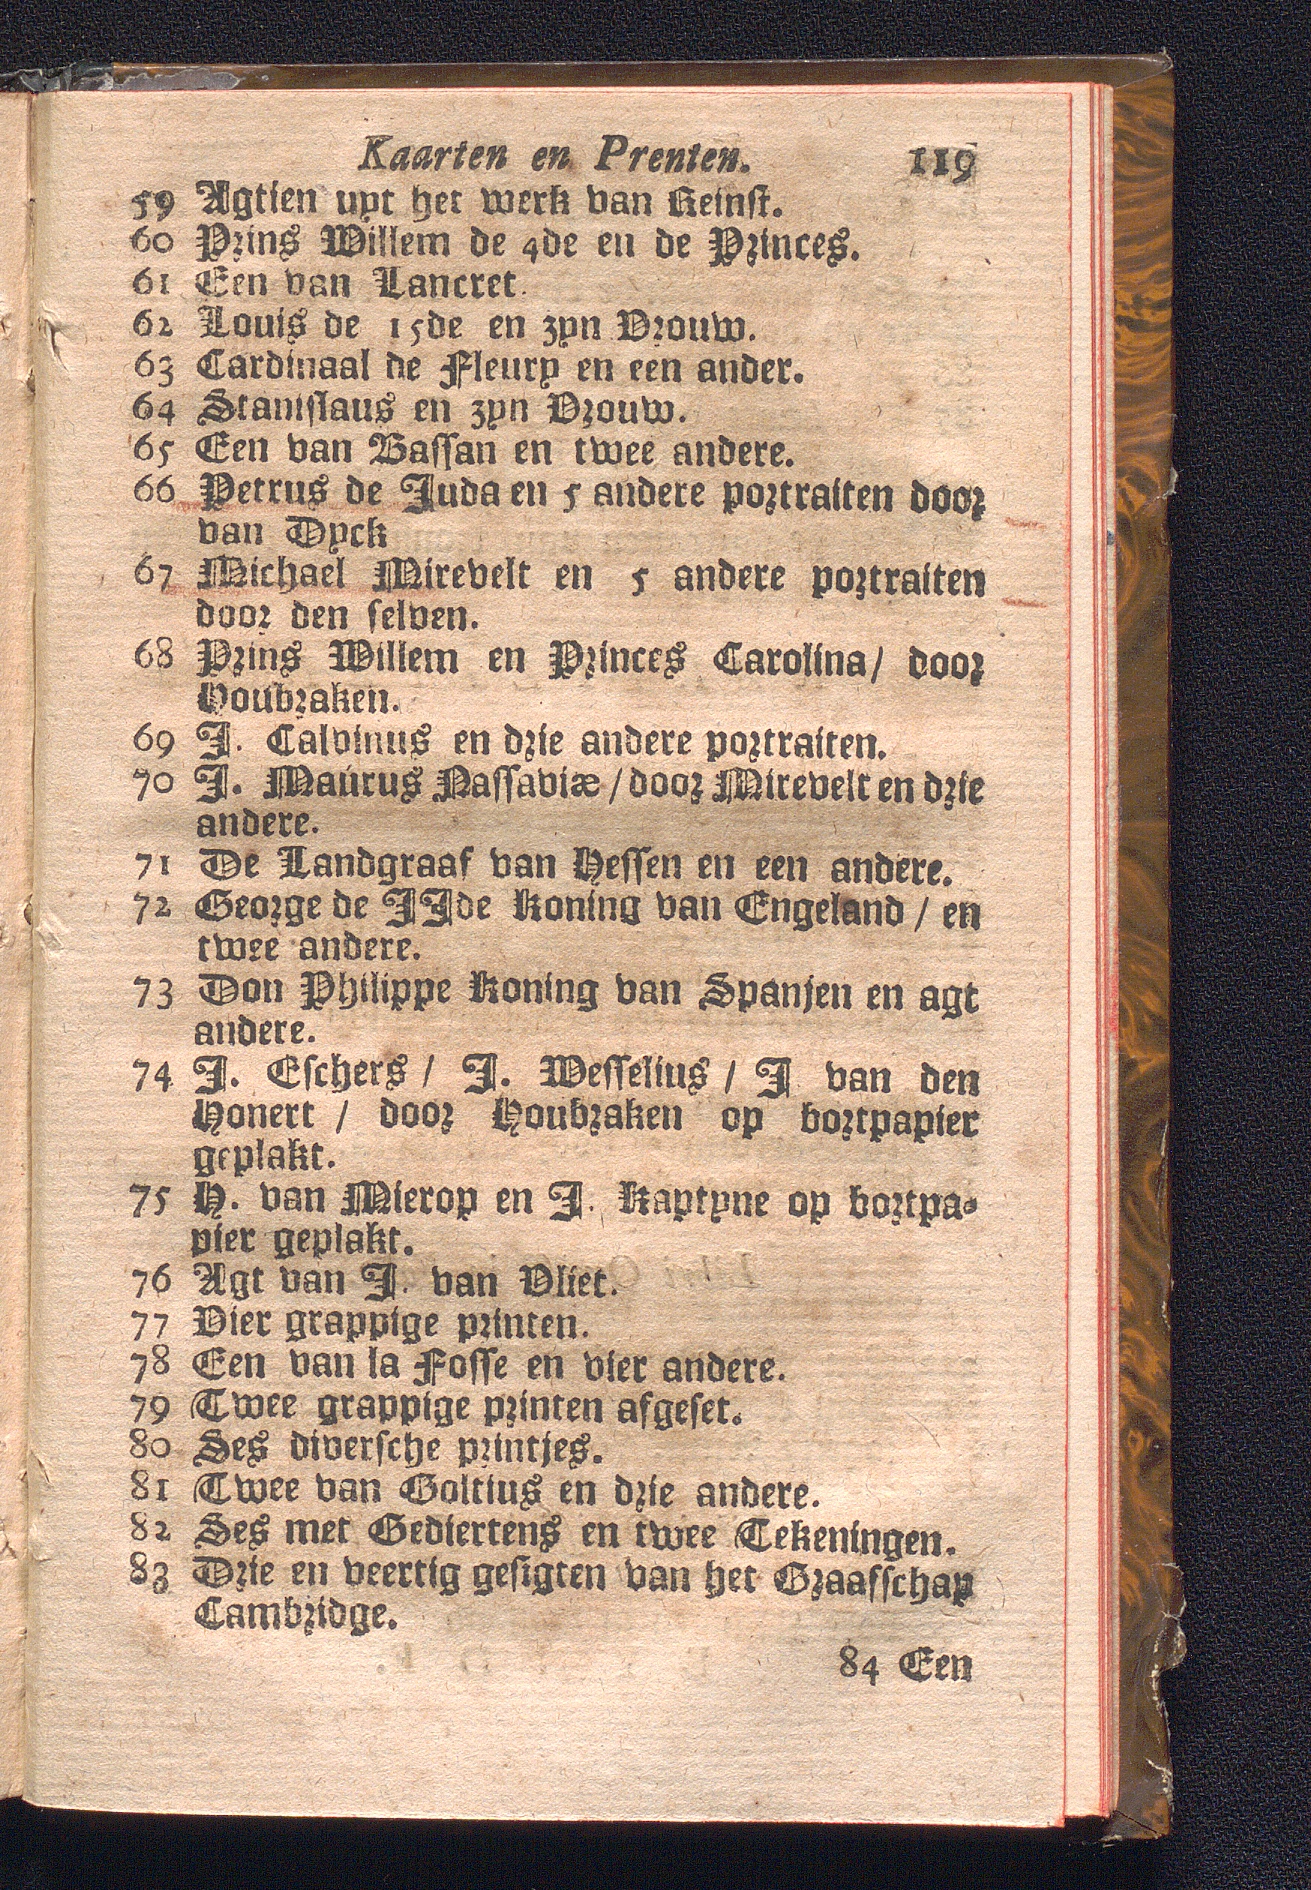 Kaarten en Prenten. 119
59 Agtien uyt het werk van Reinst.
60 Prins Willem de 4de en de Princes.
61 Een van Lancret.
62 Louis de 15de en zyn Vrouw.
63 Cardinaal de Fleury en een ander.
64 Stanislaus en zyn Vrouw.
65 Een van Bassan en twee andere.
66 Petrus de Juda en 5 andere portraiten door
van Dyck
67 Michael Mirevelt en 5 andere portraiten
door den selven.
68 Prins Willem en Princes Carolina/ door
Houbraken.
69 J. Calvinus en drie andere portraiten.
70 J. Maurus Nassaviæ / door Mirevelt en drie
andere.
71 De Landgraaf van Hessen en een andere.
72 George de IIde Koning van Engeland / en
twee andere.
73 Don Philippe Koning van Spanjen en agt
andere.
74 J. Eschers / J. Wesselius / J van den
Honert / door Houbraken op bortpapier
geplakt.
75 H. van Mierop en J. Kaptyne op bortpa-
pier geplakt.
76 Agt van J. van Vliet.
77 Vier grappige printen.
78 Een van la Fosse en vier andere.
79 Twee grappige printen afgeset.
80 Ses diversche printjes.
81 Twee van Goltius en drie andere.
82 Ses met Gediertens en twee Tekeningen.
83 Drie en veertig gesigten van het Graafschap
Cambridge.
84 Een